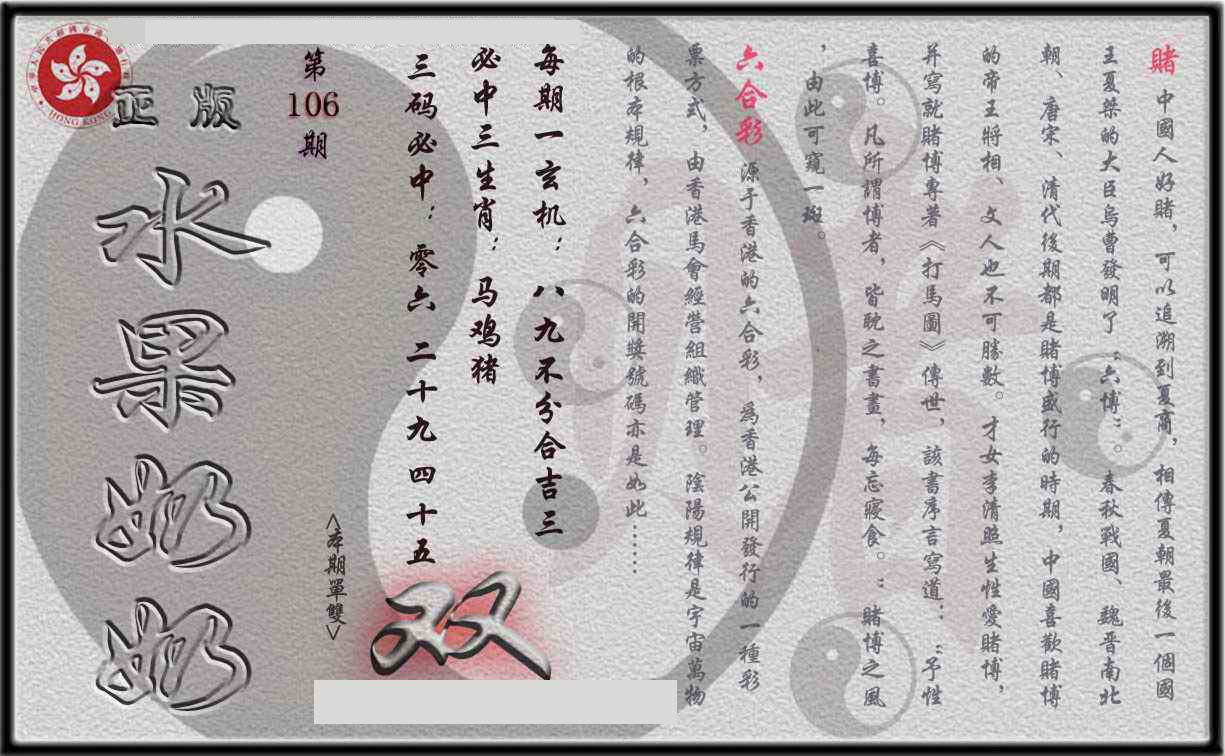 賭 中國人好賭，可以追溯到夏商，相傳夏朝最後一個國
王夏桀的大臣烏曹發明了“六博”。春秋戰國、魏晉南北
朝、唐宋、清代後期都是賭博盛行的時期，中國喜歡賭博
的帝王將相、文人也不可勝數。才女李清照生性愛賭博，
并寫就賭博專著《打馬圖》傳世，該書序言寫道：“予性
喜博。凡所謂博者，皆耽之書畫，每忘寢食。”賭博之風
，由此可窺一斑。
六合彩 源于香港的六合彩，為香港公開發行的一種彩
票方式，由香港馬會經營組織管理。陰陽規律是宇宙萬物
的根本規律，六合彩的開獎號碼亦是如此……
每期一玄机：八九不分合吉三
必中三生肖：马鸡猪
三码必中：零六 二十九 四十五
双
<本期單雙>
第106期
正版
水果奶奶
HONG KONG